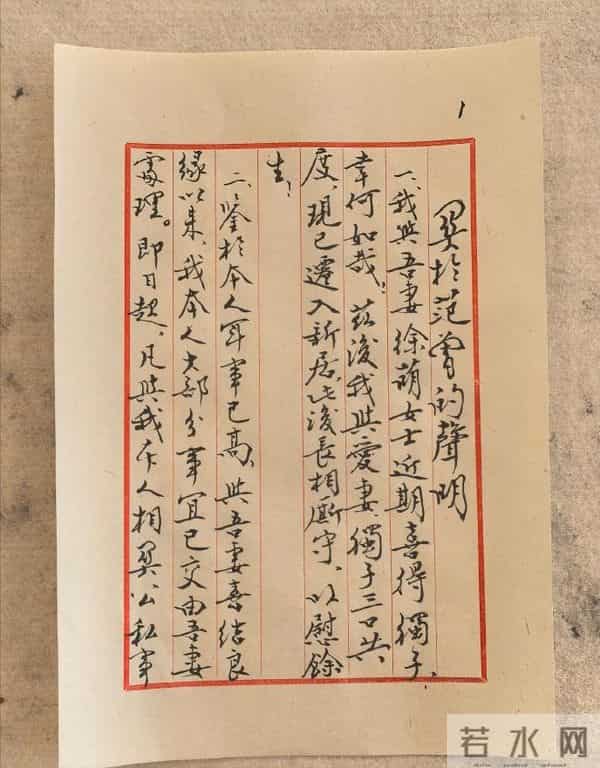 1
関於范曾的聲明
一、我與吾妻徐萌女士近期喜得獨子，
幸何如哉！茲後我與愛妻、獨子三口共
度，現已遷入新居，此後長相廝守，以慰餘
生！
二、鉴於本人年事已高，與吾妻喜结良
緣以来，我本人大部分事宜已交由吾妻
處理。即日起，凡與我本人相関公私事
若水网